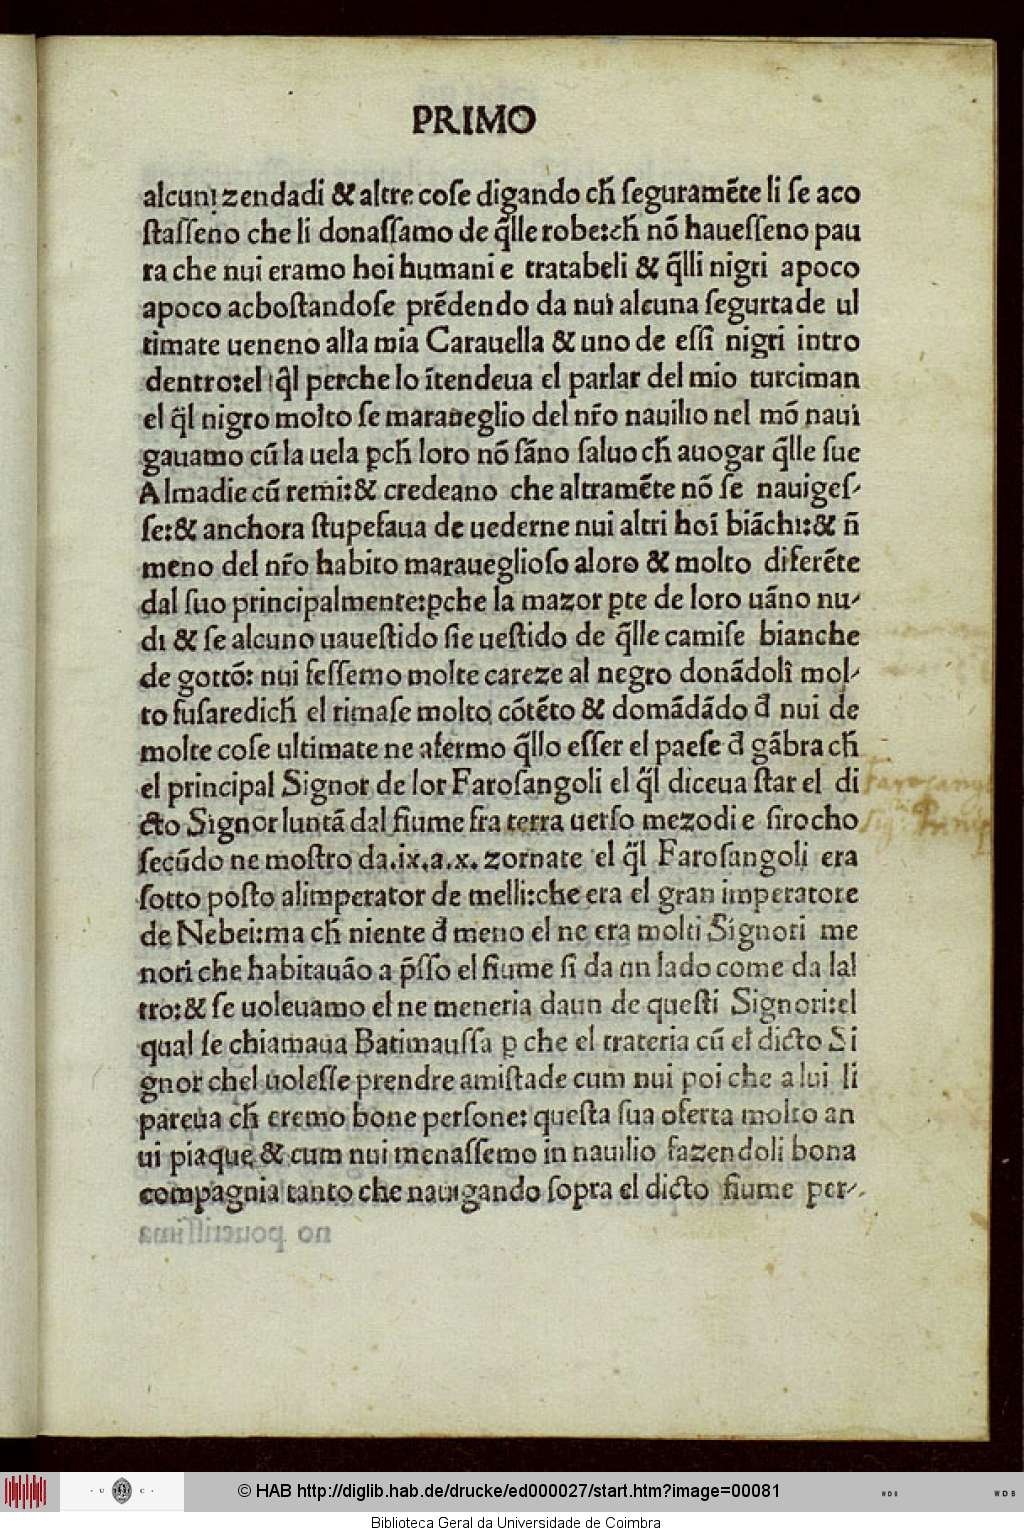 PRIMO
alcuni zendadi & altre cose digando cħ ſeguramẽte li ſe aco
ſtaſſeno che li donaſſamo de q̃lle robe:cħ nõ haueſſeno pau
ra che nui eramo hoi humani e tratabeli & q̃lli nigri apoco
apoco acboſtandoſe prẽdendo da nui alcuna ſegurtade ul
timate ueneno alla mia Carauella & uno de eſſi nigri intro
dentro:el q̃l perche lo ĩtendeua el parlar del mio turciman
el q̃l nigro molto ſe maraueglio del nr̃o nauilio nel mõ naui
gauamo cũ la uela ꝑcħ loro nõ ſãno ſaluo cħ auogar q̃lle ſue
Almadie cũ remi:& credeano che altramẽte nõ ſe nauigeſ⸗
ſe:& anchora ſtupefaua de uederne nui altri hoĩ biãchi:& ñ
meno del nr̃o habito maraueglioſo aloro & molto diferẽte
dal ſuo principalmente:ꝑche la mazor ꝑte de loro uãno nu⸗
di & ſe alcuno uaueſtido ſie ueſtido de q̃lle camiſe bianche
de gottõ: nui feſſemo molte careze al negro donãdoli mol⸗
to fuſaredicħ el rimaſe molto cõtẽto & domãdãdo đ nui de
molte coſe ultimate ne afermo q̃llo eſſer el paeſe đ gãbra cħ
el principal Signor de lor Faroſangoli el q̃l diceua ſtar el di
cto Signor luntã dal fiume fra terra uerſo mezodi e ſirocho
ſecũdo ne moſtro da.ix.a.x. zornate el q̃l Faroſangoli era
ſotto poſto alimperator de melli:che era el gran imperatore
de Nebei:ma cħ niente đ meno el ne era molti Signori me
nori che habitauão a p̃ſſo el fiume ſi da un lado come da lal
tro:& ſe uoleuamo el ne meneria daun de queſti Signori:el
qual ſe chiamaua Batimauſſa ꝑ che el trateria cũ el dicto Si
gnor chel uoleſſe prendre amiſtade cum nui poi che a lui li
pareua cħ eremo bone perſone: queſta ſua oferta molto an
ui piaque & cum nui menaſſemo in nauilio fazendoli bona
compagnia tanto che nauigando ſopra el dicto fiume per⸗
Faroſang
© HAB http://diglib.hab.de/drucke/ed000027/start.htm?image=00081
Biblioteca Geral da Universidade de Coimbra